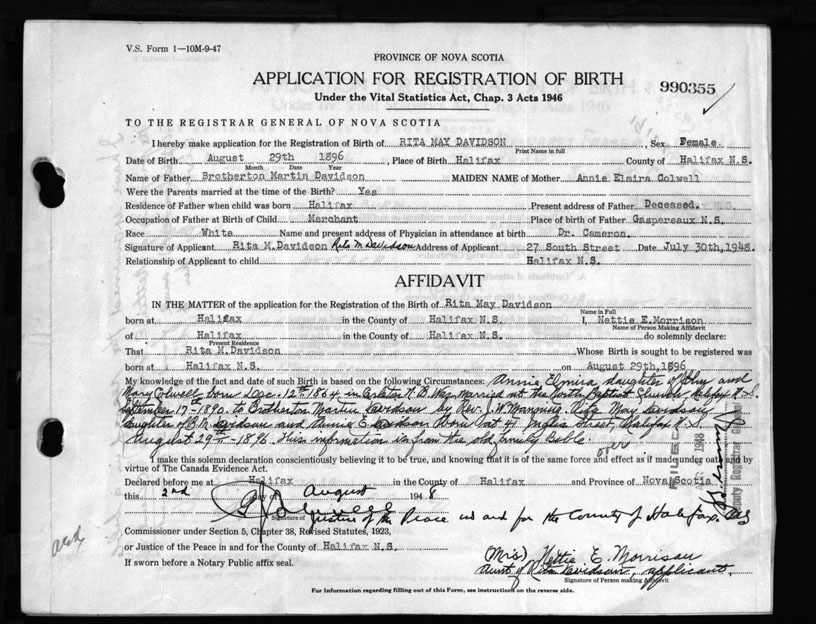 V.S. Form 1—10M-9-47
PROVINCE OF NOVA SCOTIA
APPLICATION FOR REGISTRATION OF BIRTH
990355
Under the Vital Statistics Act, Chap. 3 Acts 1946
TO THE REGISTRAR GENERAL OF NOVA SCOTIA
I hereby make application for the Registration of Birth of RITA MAY DAVIDSON, Sex Female.
Print Name in full
Date of Birth August 29th 1896, Place of Birth Halifax County of Halifax N.S.
Month Date Year
Name of Father Brotherton Martin Davidson MAIDEN NAME of Mother Annie Elmira Colwell
Were the Parents married at the time of the Birth? Yes
Residence of Father when child was born Halifax Present address of Father Deceased.
Occupation of Father at Birth of Child Merchant Place of birth of Father Gaspereaux N.S.
Race White Name and present address of Physician in attendance at birth Dr. Cameron.
Signature of Applicant Rita M.Davidson Rita M Davidson Address of Applicant 27 South Street Date July 30th,1948.
Relationship of Applicant to child Halifax N.S.
AFFIDAVIT
IN THE MATTER of the application for the Registration of the Birth of Rita May Davidson
Name in Full
born at Halifax in the County of Halifax N.S. I, Nettie E.Morrison
Name of Person Making Affidavit
of Halifax in the County of Halifax N.S. do solemnly declare:
Present Residence
That Rita M.Davidson Whose Birth is sought to be registered was
born at Halifax N.S. on August 29th,1896
My knowledge of the fact and date of such Birth is based on the following Circumstances: Annie Elmira daughter of John and
Mary Colwell born Dec. 12th 1864 in Carleton N.B. Was Married at the North Baptist Church Halifax N.S.
September 17th - 1890 to Brotherton Martin Davidson by Rev. J. W. Manning. Rita May Davidson
daughter of B. M. Davidson and Annie E. Davidson born at 41 Inglis Street, Halifax N.S.
August 29th - 1896. This information is from the old family Bible.
over
I make this solemn declaration conscientiously believing it to be true, and knowing that it is of the same force and effect as if made under oath and by
virtue of The Canada Evidence Act.
FILED
1948
Deputy Registrar
Declared before me at Halifax in the County of Halifax and Province of Nova Scotia
this 2nd day of August 1948
Signature of Justice of the Peace in and for the County of Halifax.
Commissioner under Section 5, Chapter 38, Revised Statutes, 1923,
or Justice of the Peace in and for the County of Halifax N.S.
If sworn before a Notary Public affix seal.
(Mrs) Nettie E. Morrison
Aunt of Rita Davidson, applicant.
Signature of Person making Affidavit
For Information regarding filling out of this Form, see instructions on the reverse side.